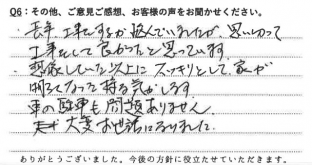 Q6：その他、ご意見ご感想、お客様の声をお聞かせください。
・長年 工事をするか 悩んでいましたが 思いきって
工事をして 良かったと思っています
・想像していた以上に スッキリとして 家が
明るくなった 様な 気がします。
車の駐車も 問題ありません。
大変 お世話になりました。
ありがとうございました。今後の方針に役立たせていただきます。